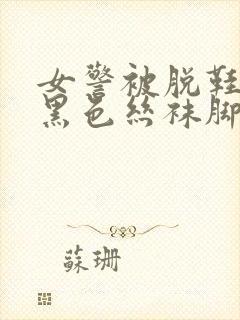 女警被脱鞋
黑色丝袜脚
蘇珊